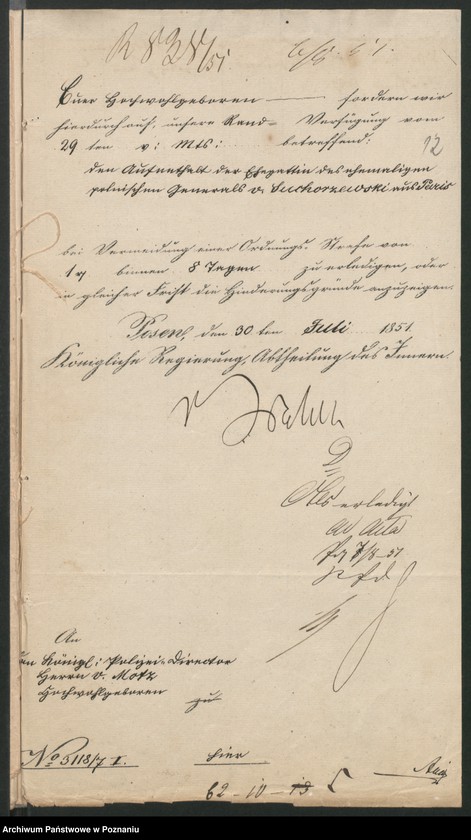 R 828/51.
12
Euer Hochwohlgeboren — fordern wir
hierdurch auf, unsere Rand- Verfügung vom
29 ten v: Mts: betreffend:
den Aufenthalt der Ehegattin des ehemaligen
polnischen Generals v. Suchorzewski aus Paris
bei Vermeidung einer Ordnungs-Strafe von
1 binnen 8 Tagen zu erledigen, oder
in gleicher Frist die Hinderungsgründe anzuzeigen.
Posen, den 30 ten Juli 1851.
Königliche Regierung, Abtheilung des Innern.
Als erledigt
ad Acta
7/8-51
An
den Königl: Polizei-Director
Herrn v. Motz
Hochwohlgeboren
zu
hier
No 3118/7 I.
62 - 10 - 13
Archiwum Państwowe w Poznaniu